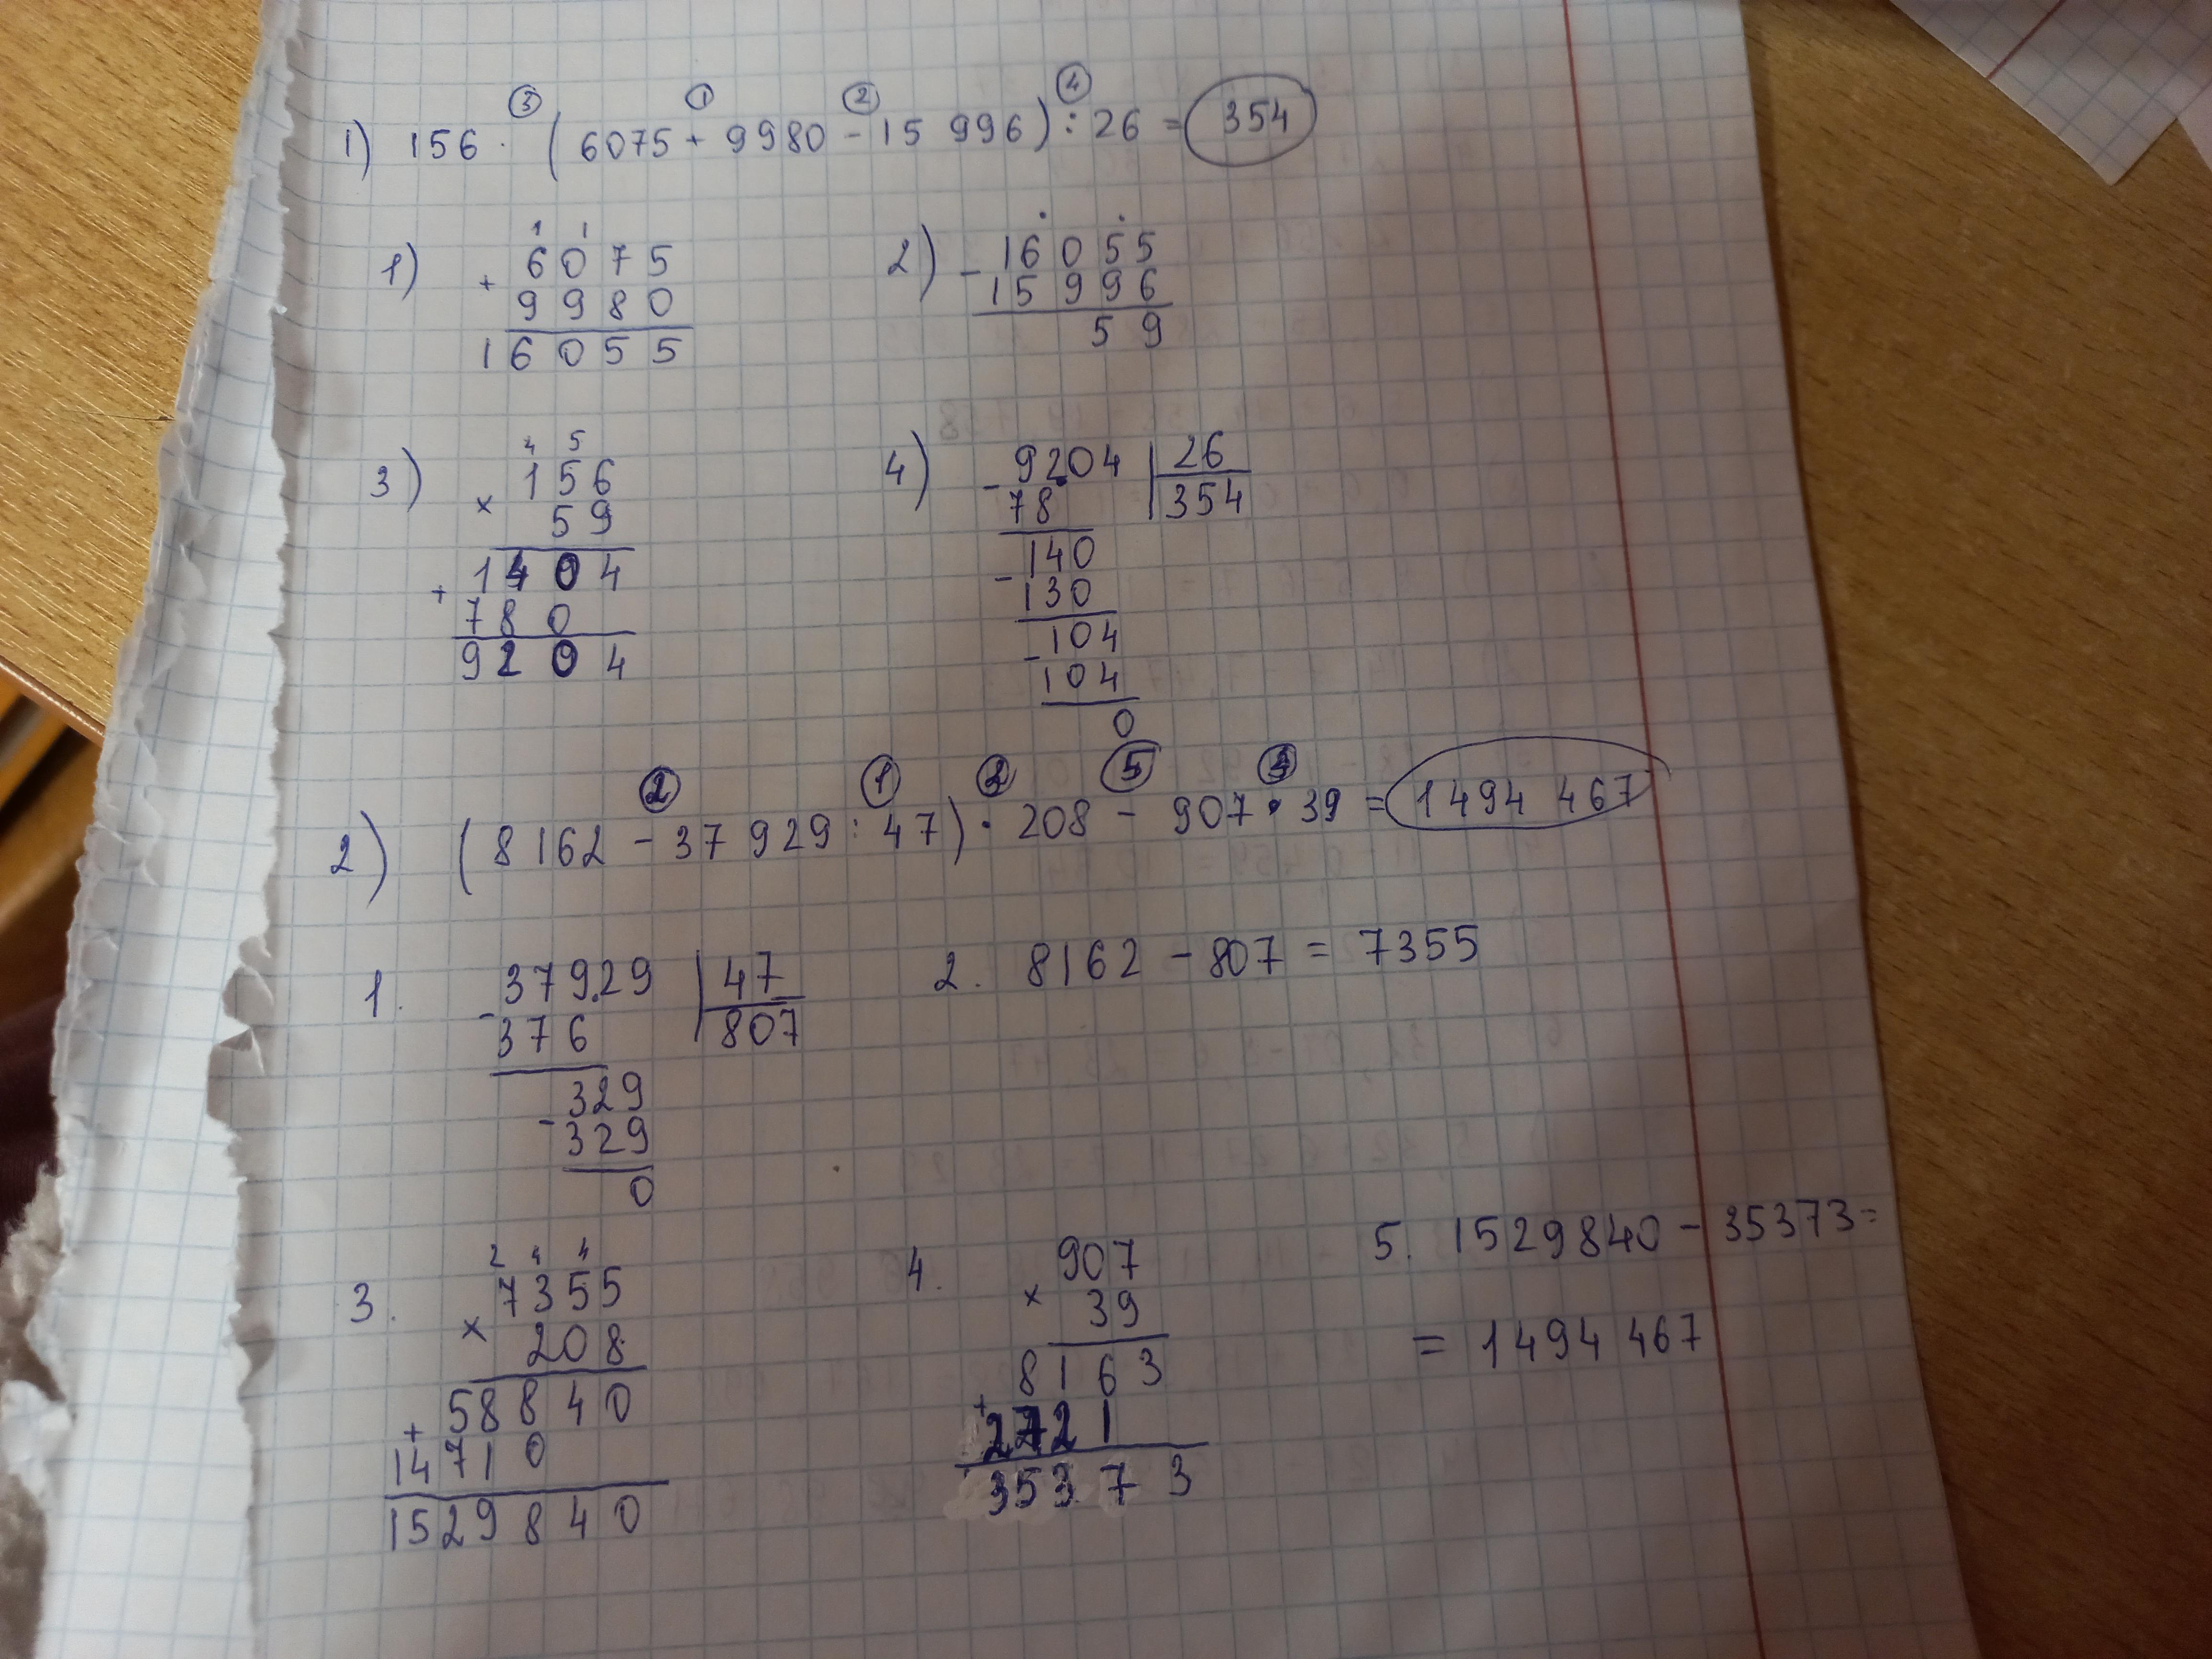 ③ ① ② ④
1) 156 · (6075 + 9980 - 15 996) : 26 = 354
1) 2)
1 1
6075 16055
+ -
9980 15996
16055 59
3) 4)
4 5
156 - 9204 | 26
× 59 78 354
1404 140
+ - 130
780 104
9204 - 104
0
② ① ③ ⑤ ④
2) (8162 - 37 929 : 47) · 208 - 907 · 39 = 1494 467
1. - 37929 | 47 2. 8162 - 807 = 7355
376 807
329
- 329
0
2 4 4
3. 7355 4. 907 5. 1529840 - 35373 =
× 208 × 39 = 1494 467
58840 8163
+ 14710 + 2721
1529840 35373